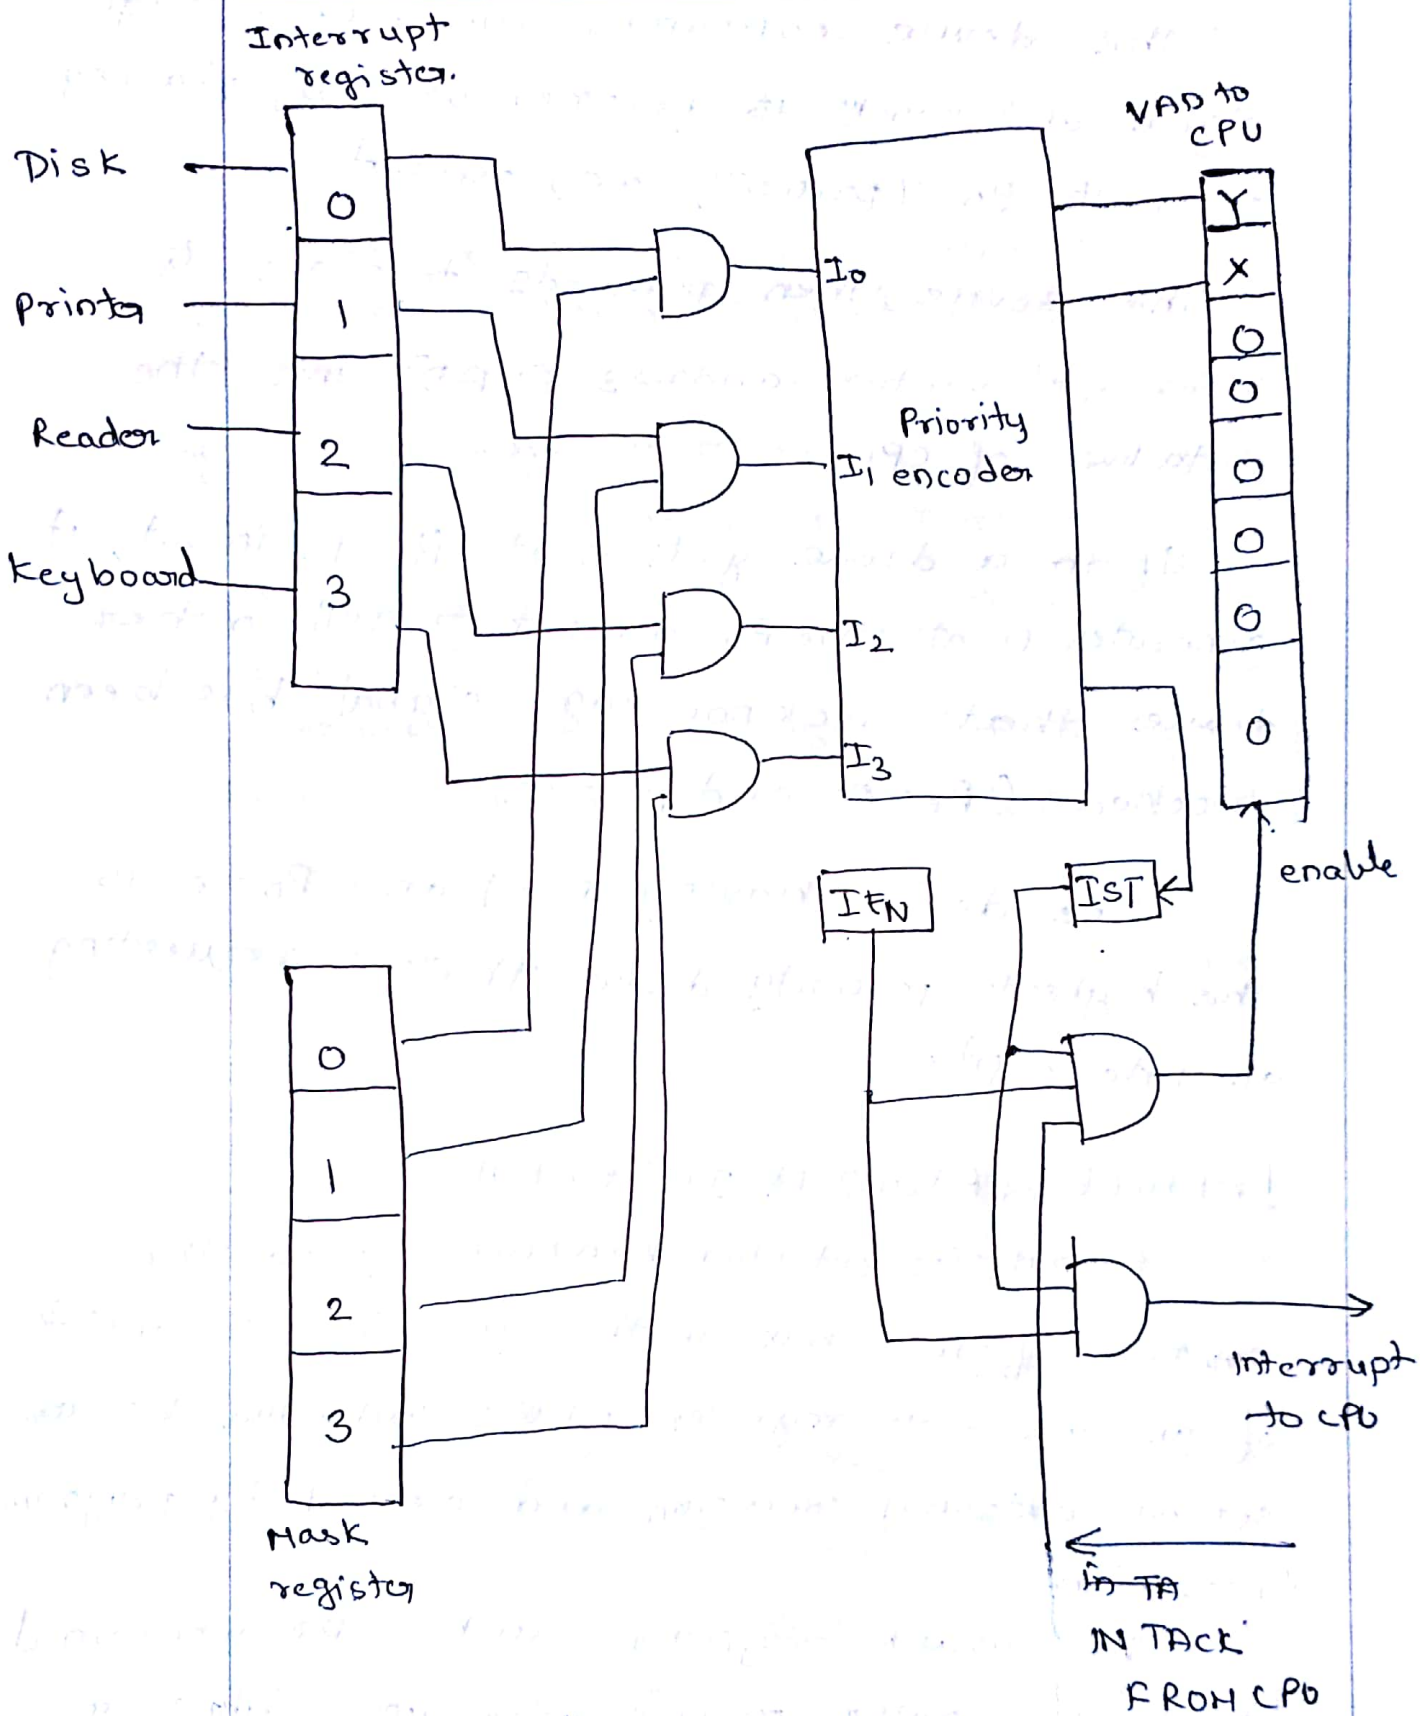 Interrupt
register.
Disk
0
Printer
1
Reader
2
Keyboard
3
I0
I1
I2
I3
Priority
encoder
VAD to
CPU
Y
X
0
0
0
0
0
0
enable
IEN
IST
0
1
2
3
Mask
register
Interrupt
to CPU
IN TACK
FROM CPU